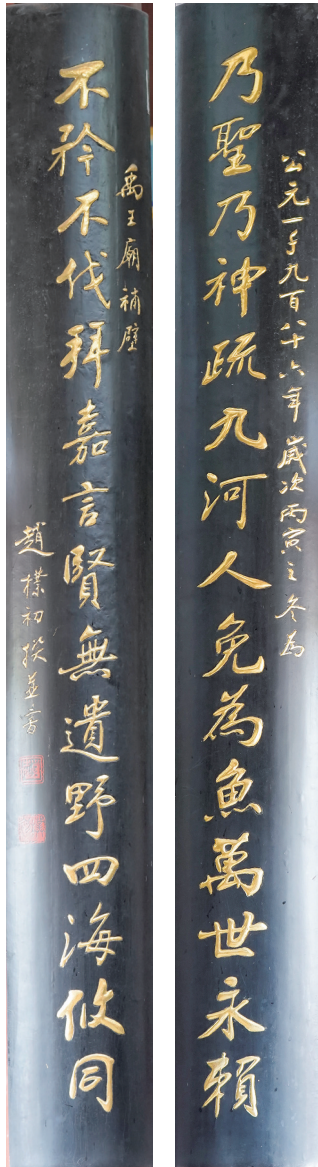 公元一千九百八十六年歲次丙寅之冬為
乃聖乃神疏九河人免為魚萬世永賴
禹王廟補壁
不矜不伐拜嘉言賢無遺野四海攸同
趙樸初撰並書